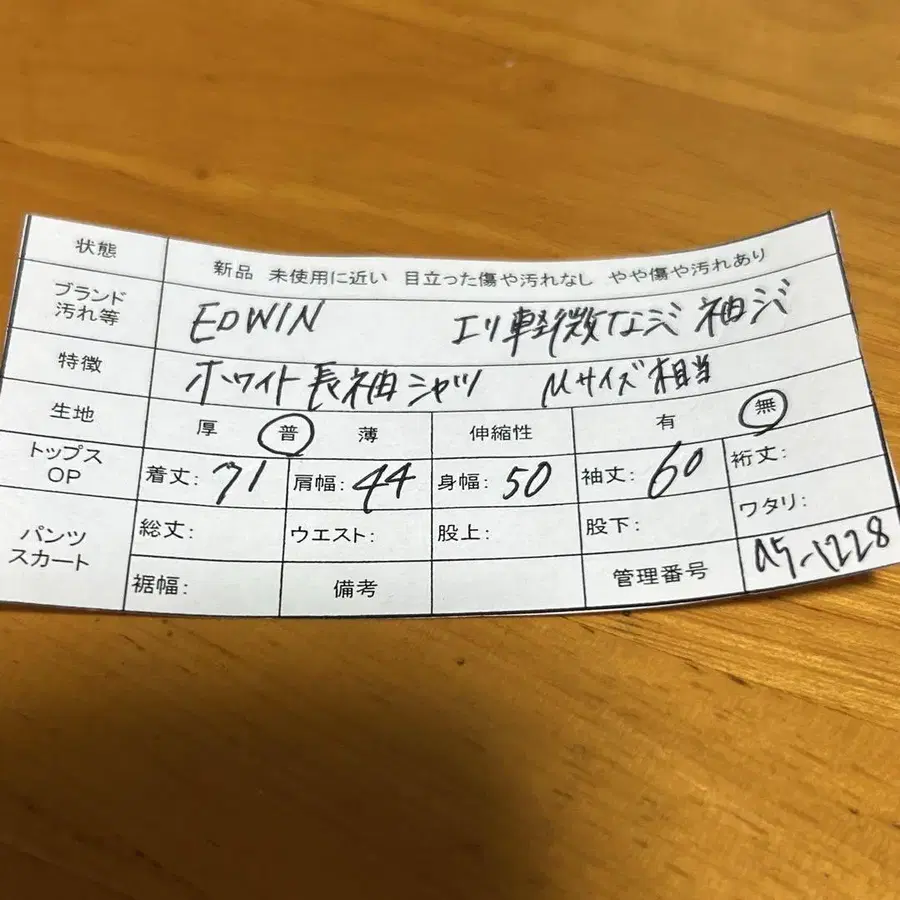 状態 新品 未使用に近い 目立った傷や汚れなし やや傷や汚れあり
ブランド 汚れ等 EDWIN エリ軽微なシミ 袖シミ
特徴 ホワイト長袖シャツ Mサイズ相当
生地 厚 普 薄 伸縮性 有 無
トップス OP 着丈: 71 肩幅: 44 身幅: 50 袖丈: 60 裄丈:
パンツ スカート 総丈: ウエスト: 股上: 股下: ワタリ:
裾幅: 備考 管理番号